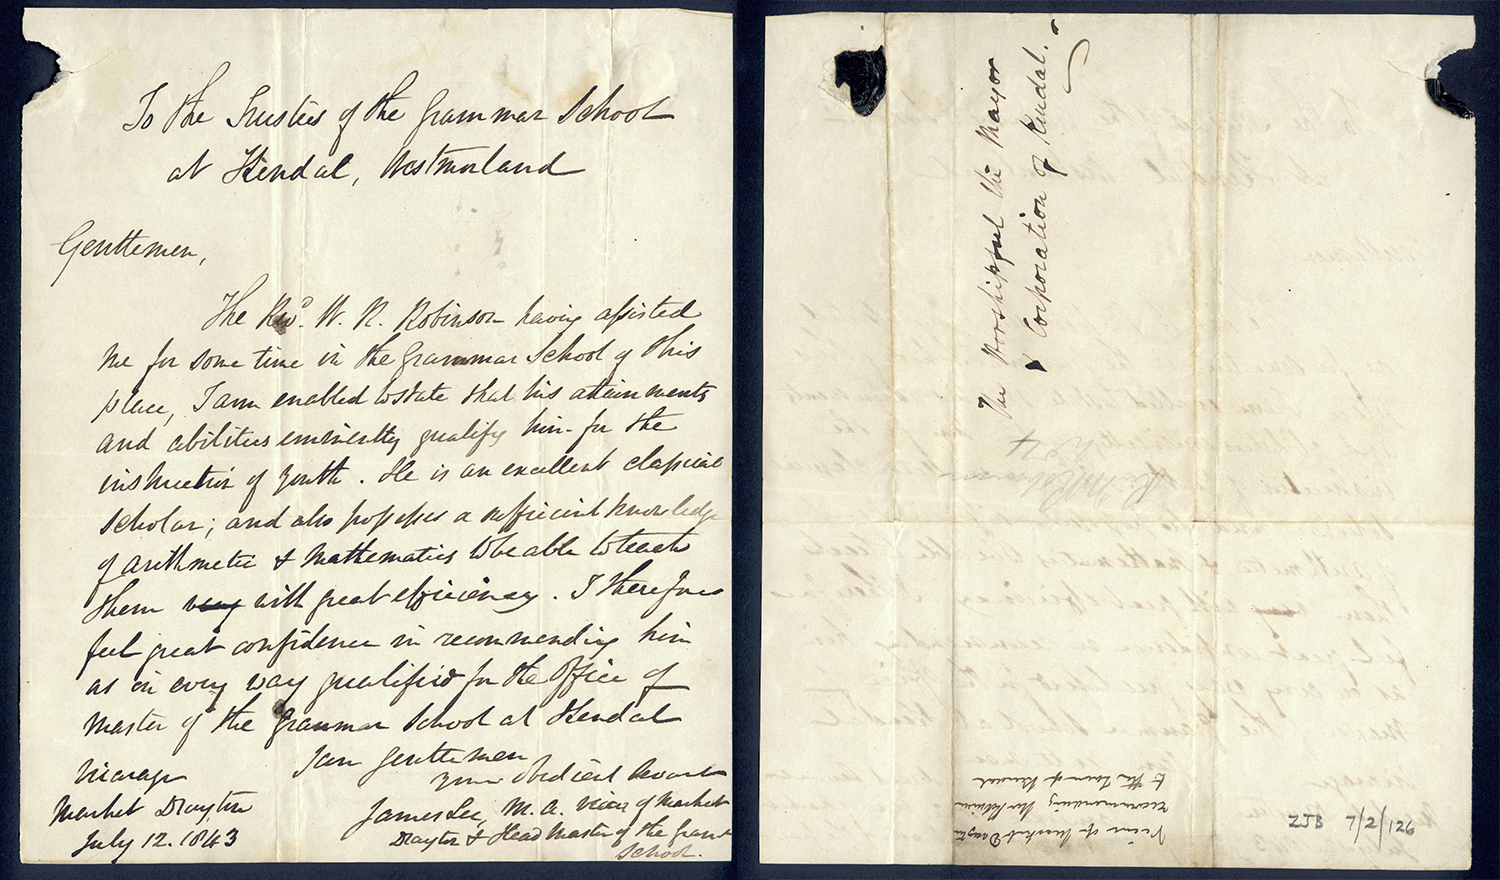 To the Trustees of the Grammar School
at Kendal, Westmorland
Gentlemen,
The Revd. W. R. Robinson having assisted
me for some time in the Grammar School of this
place, I am enabled to state that his attainments
and abilities eminently qualify him for the
instruction of youth. He is an excellent classical
scholar; and also possesses a sufficient knowledge
of arithmetic & mathematics to be able to teach
them very with great efficiency. I therefore
feel great confidence in recommending him
as in every way qualified for the office of
Master of the Grammar School at Kendal
I am Gentlemen
your obedient Servant
James Lee, M.A. Vicar of Market
Drayton & Head Master of the Gramr
School.
Vicarage
Market Drayton
July 12. 1843
The Worshipful the Mayor
& Corporation of Kendal.
Robinson
Vicar of Market Drayton
recommending Mr Robinson
to the Town of Kendal
ZJB 7/2/126